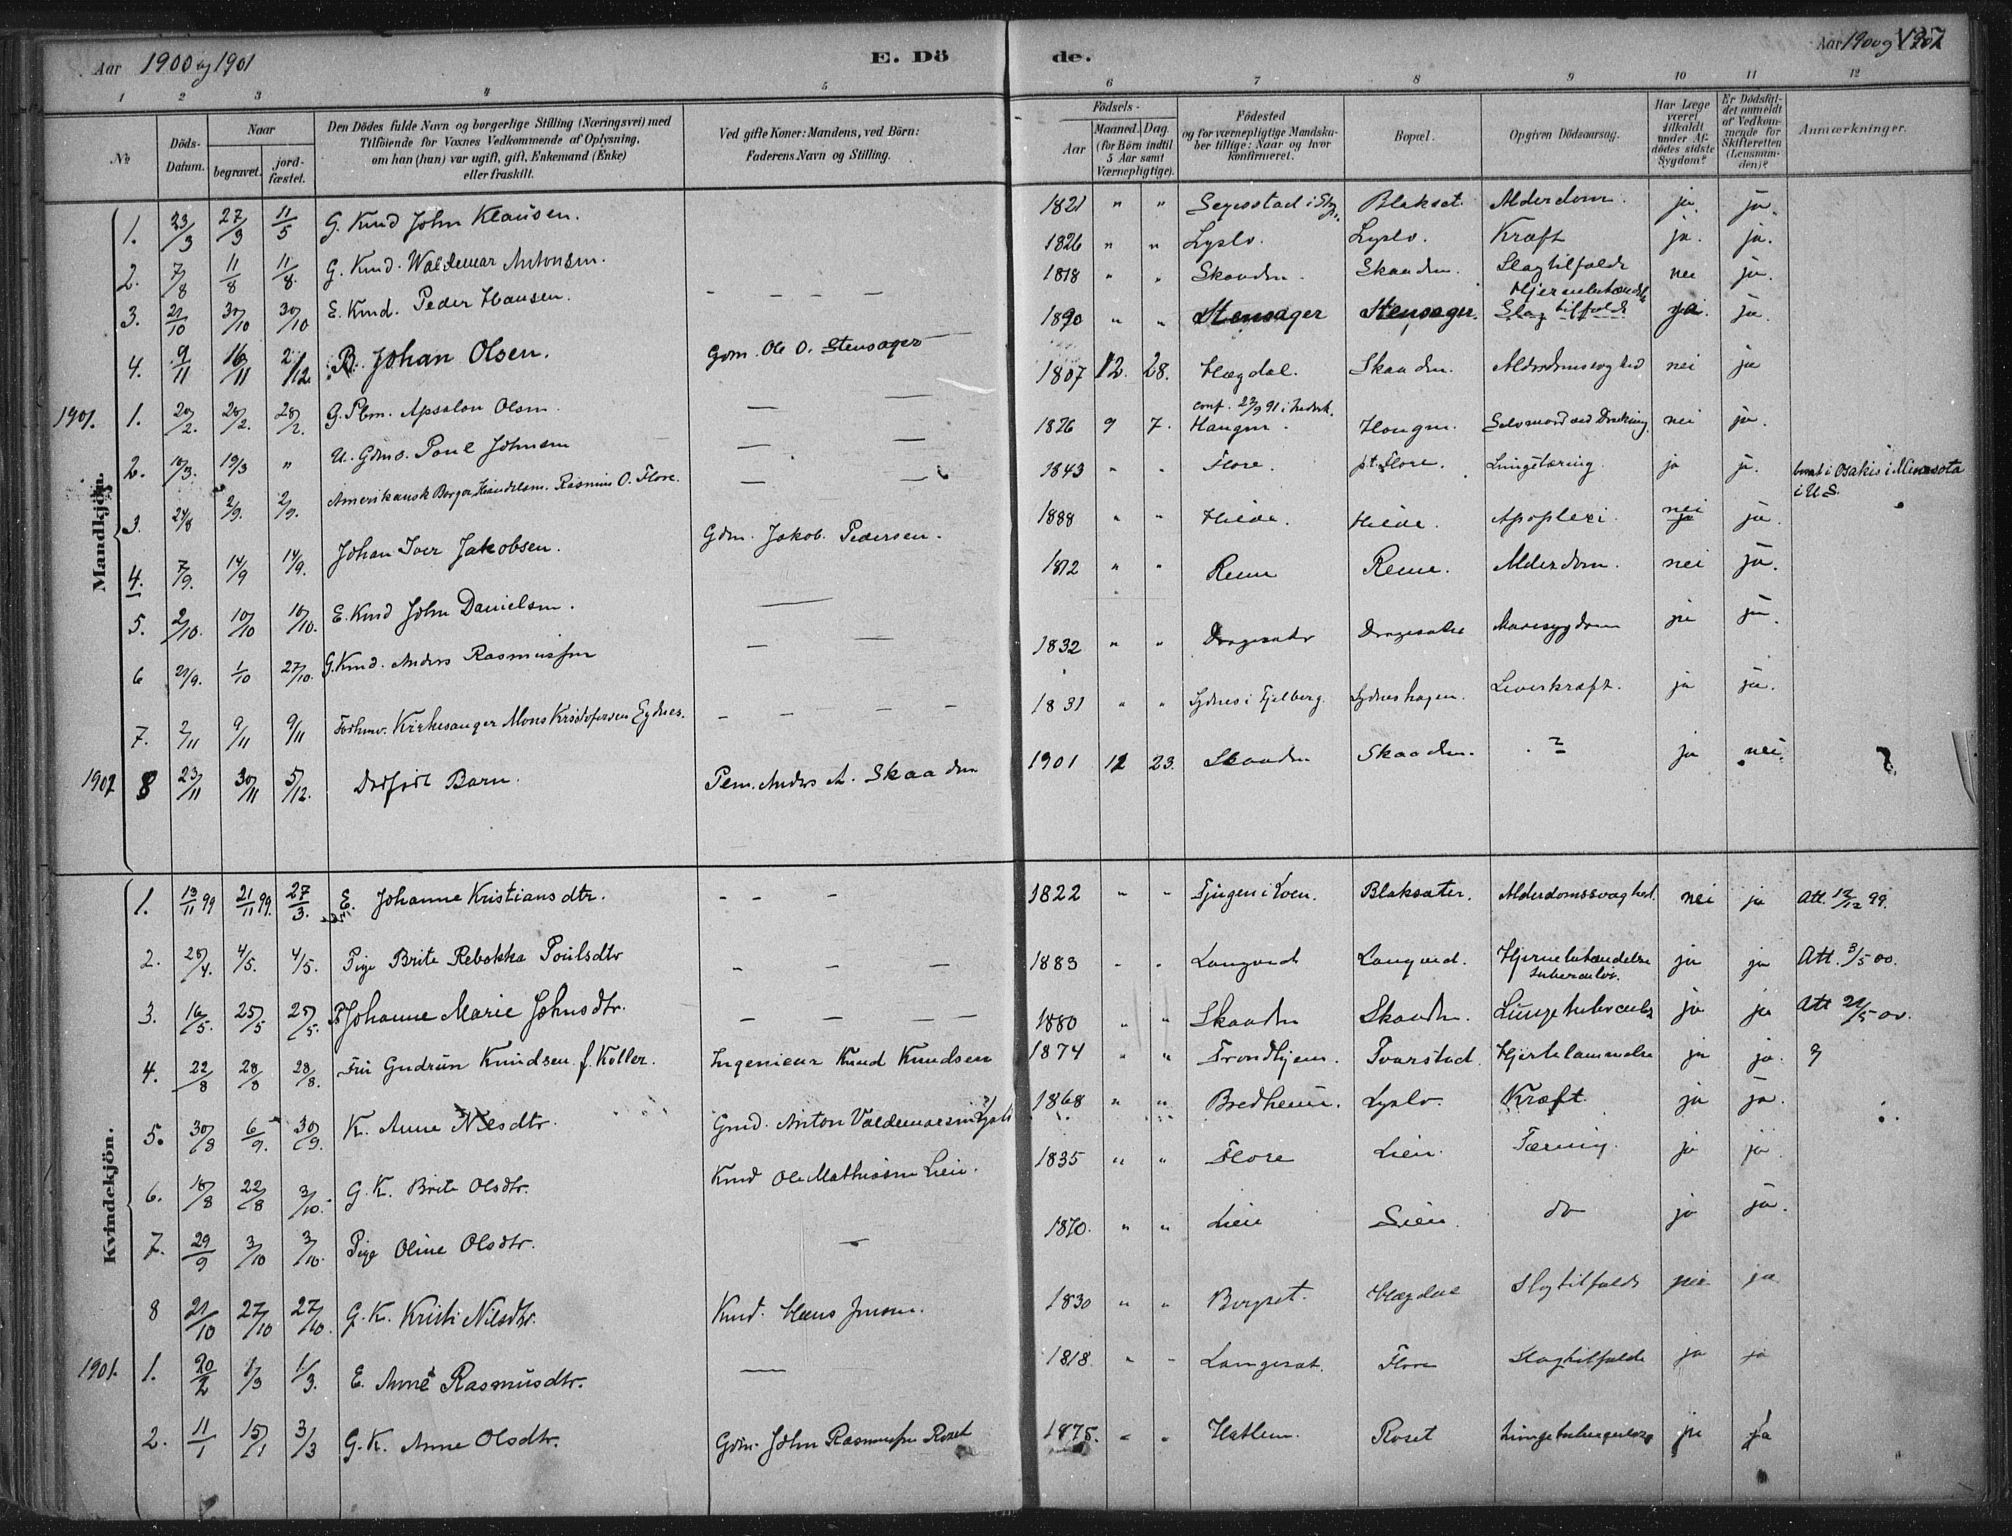 Aar 1900 og 1901 E. Dö de. Aar 1900 og 1901 137
1 2 3 4 5 6 7 8 9 10 11 12
No Döds-Datum. Naar begravet. jord-fæstet. Den Dödes fulde Navn og borgerlige Stilling (Næringsvei) med Tilföiende for Voxnes Vedkommende af Oplysning, om han (hun) var ugift, gift, Enkemand (Enke) eller fraskilt. Ved gifte Koner: Mandens, ved Börn: Faderens Navn og Stilling. Födsels- Aar Maaned. Dag. (for Börn indtil 5 Aar samt Værnepligtige). Födested og for værnepligtige Mandskaber tillige: Naar og hvor konfirmeret. Bopæl. Opgiven Dödsaarsag. Har Læge været tilkaldt under Afdödes sidste Sygdom? Er Dödsfaldet anmeldt af Vedkommende for Skifteretten (Lensmanden)? Anmærkninger.
Mandkjön.
1. 23/3 27/3 11/5 G. Kmd John Klausen. 1821 " " Blakset. Alderdom. ja. ja.
2. 7/8 11/8 11/8 G. Kmd. Waldemar Antonsen. 1826 " " Lyslo. Lyslo. Kræft ja. ja.
3. 21/10 30/10 30/10 E. Kmd. Peder Hansen. – – – – 1818 " " Skaaden. Skaaden. Slagtilfælde nei ja.
4. 9/11 16/11 2/12 B. Johan Olsen. Gdm. Ole O. Stensager 1890 " " Stensager Stensager. Hjernebetændelse Slagtilfælde ja. ja.
1901. 1. 20/2. 28/2. 28/2. G. Plm. Apsalon Olsen. — — 1807 12. 28. Hægdal. Skaaden. Alderdomssvaghed nei ja
2. 10/3. 19/3 " U. Gdms. Poul Johnsen — — conf. 27/9 91 i 1876 9 7. Haugen. Haugen. Selvmord ved Drukning. nei ja.
3. 24/8 2/9. 2/9. Amerikansk Borger Handelsm. Rasmus O. Flore. — 1843 " " Flore. pt. Flore. Lungetæring. ja ja. bosat i Osakis i Minnesota i U.S.
4. 7/9. 14/9 14/9. Johan Iver Jakobsen. Gdm. Jakob Pedersen. 1888 " " Hilde. Hilde. Apoplexi. nei ja ja.
5. 2/10. 10/10 10/10. E. Kmd John Danielsen. — 1812 " " Reme Reme. Alderdom. nei ja.
6 21/9. 1/10 27/10. G. Kmd. Anders Rasmussen — — 1832 " " Dragesæter Dragesæter Mavesygdom ja ja.
7. 2/11 9/11 9/11 Forhenv. Kirkesanger Mons Kristofersen Sydnes. – – – – 1831 " " Sydnes i Fjelberg. Sydneshagen. Leverkræft. ja ja.
1901 8 23/11 30/11 5/12. Dødfødt Barn. Plm. Anders A. Skaaden 1901 12 23. Skaaden Skaaden. ? ja nei.
Kvindekjön.
1. 13/11 99 21/11 99. 27/3. E. Johanne Kristiansdtr. – – – 1822 " " Blaksæter. Alderdomssvaghed. nei ja Att. 13/12 99.
2. 28/4. 4/5. 4/5. Pige Brite Rebekka Poulsdtr – – – 1883 " " Langved Langved. Hjernebetændelse tuberculøs. ja ja Att. 3/5 00.
3. 16/5. 25/5 25/5. P. Johanne Marie Johnsdtr. – – – – 1880 " " Skaaden Skaaden. Lungetuberculose ja ja Att 21/5 00.
4. 22/8 28/8 28/8. Fru Gudrun Knudsen f. Koller. Ingenieur Knud Knudsen 1874 " " Trondhjem. Tvarstad. Hjertelammelse ja ja.
5. 30/8 6/9. 30/9. K. Anne Nilsdtr. Gmd. Anton Valdemarsen Lyslo 1868 " " Bredheim. Lyslo. Kræft. ja ja.
6. 18/8 22/8 3/10. G. K. Brite Olsdtr. Kmd Ole Mathiasen Lien. 1835 " " Flore Lien. Tæring. ja ja.
7. 29/9 3/10 3/10. Pige Oline Olsdtr. — 1870. " " Lien Lien. do ja ja.
8 21/10 27/10 27/10. G. K. Kristi Nilsdtr. Kmd. Hans Jensen. 1830 " " Bergset. Hægdal Slagtilfælde nei ja
1901. 1. 20/2 1/3 1/3. E. Anne Rasmusdtr. — 1818. " " Langesæt. Flore Slagtilfælde ja ja
2. 11/1 15/1 3/3 G. K. Anne Olsdtr. Gdm. John Rasmussen Roset 1875. " " Hatlem. Roset Lungetuberculose ja ja